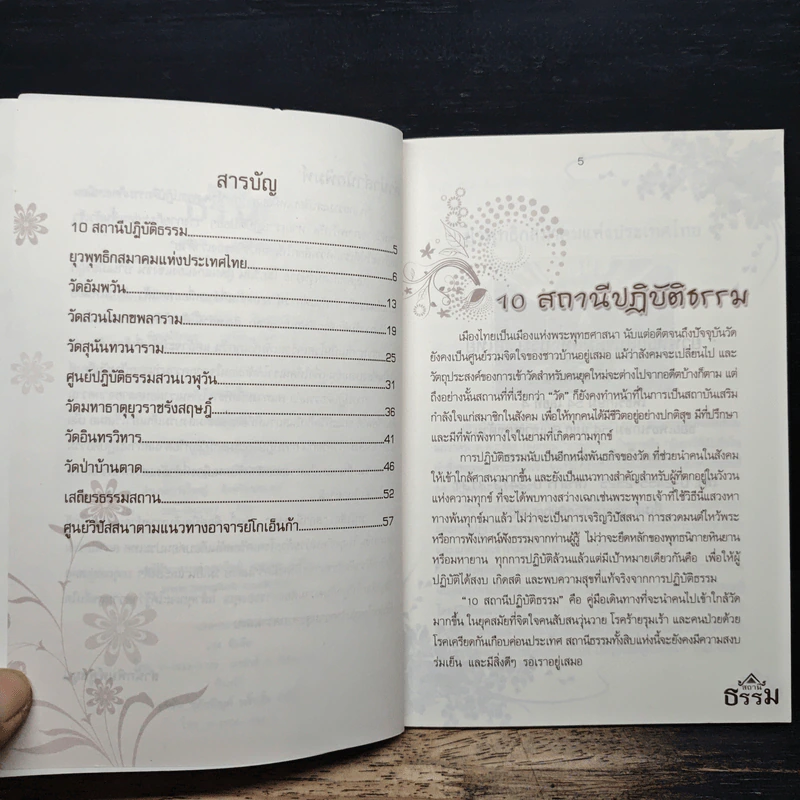 สารบัญ
10 สถานีปฏิบัติธรรม 5
ยุวพุทธิกสมาคมแห่งประเทศไทย 6
วัดอัมพวัน 13
วัดสวนโมกขพลาราม 19
วัดสุนันทวนาราม 25
ศูนย์ปฏิบัติธรรมสวนเวฬุวัน 31
วัดมหาธาตุยุวราชรังสฤษฎิ์ 36
วัดอินทรวิหาร 41
วัดป่าบ้านตาด 46
เสถียรธรรมสถาน 52
ศูนย์วิปัสสนาตามแนวทางอาจารย์โกเอ็นก้า 57
5
10 สถานีปฏิบัติธรรม
เมืองไทยเป็นเมืองแห่งพระพุทธศาสนา นับแต่อดีตจนถึงปัจจุบันวัด
ยังคงเป็นศูนย์รวมจิตใจของชาวบ้านอยู่เสมอ แม้ว่าสังคมจะเปลี่ยนไป และ
วัตถุประสงค์ของการเข้าวัดสำหรับคนยุคใหม่จะต่างไปจากอดีตบ้างก็ตาม แต่
ถึงอย่างนั้นสถานที่ที่เรียกว่า "วัด" ก็ยังคงทำหน้าที่ในการเป็นสถาบันเสริม
กำลังใจแก่สมาชิกในสังคม เพื่อให้ทุกคนได้มีชีวิตอยู่อย่างปกติสุข มีที่ปรึกษา
และมีที่พักพิงทางใจในยามที่เกิดความทุกข์
การปฏิบัติธรรมนับเป็นอีกหนึ่งพันธกิจของวัด ที่ช่วยนำคนในสังคม
ให้เข้าใกล้ศาสนามากขึ้น และยังเป็นแนวทางสำคัญสำหรับผู้ที่ตกอยู่ในวังวน
แห่งความทุกข์ ที่จะได้พบทางสว่างเฉกเช่นพระพุทธเจ้าที่ใช้วิธีนี้แสวงหา
ทางพ้นทุกข์มาแล้ว ไม่ว่าจะเป็นการเจริญวิปัสสนา การสวดมนต์ไหว้พระ
หรือการฟังเทศน์ฟังธรรมจากท่านผู้รู้ ไม่ว่าจะยึดหลักของพุทธนิกายหินยาน
หรือมหายาน ทุกการปฏิบัติล้วนแล้วแต่มีเป้าหมายเดียวกันคือ เพื่อให้ผู้
ปฏิบัติได้สงบ เกิดสติ และพบความสุขที่แท้จริงจากการปฏิบัติธรรม
"10 สถานีปฏิบัติธรรม" คือ คู่มือเดินทางที่จะนำคนไปเข้าใกล้วัด
มากขึ้น ในยุคสมัยที่จิตใจคนสับสนวุ่นวาย โรคร้ายรุมเร้า และคนป่วยด้วย
โรคเครียดกันเกือบค่อนประเทศ สถานีธรรมทั้งสิบแห่งนี้จะยังคงมีความสงบ
ร่มเย็น และมีสิ่งดีๆ รอเราอยู่เสมอ
สถานี
ธรรม